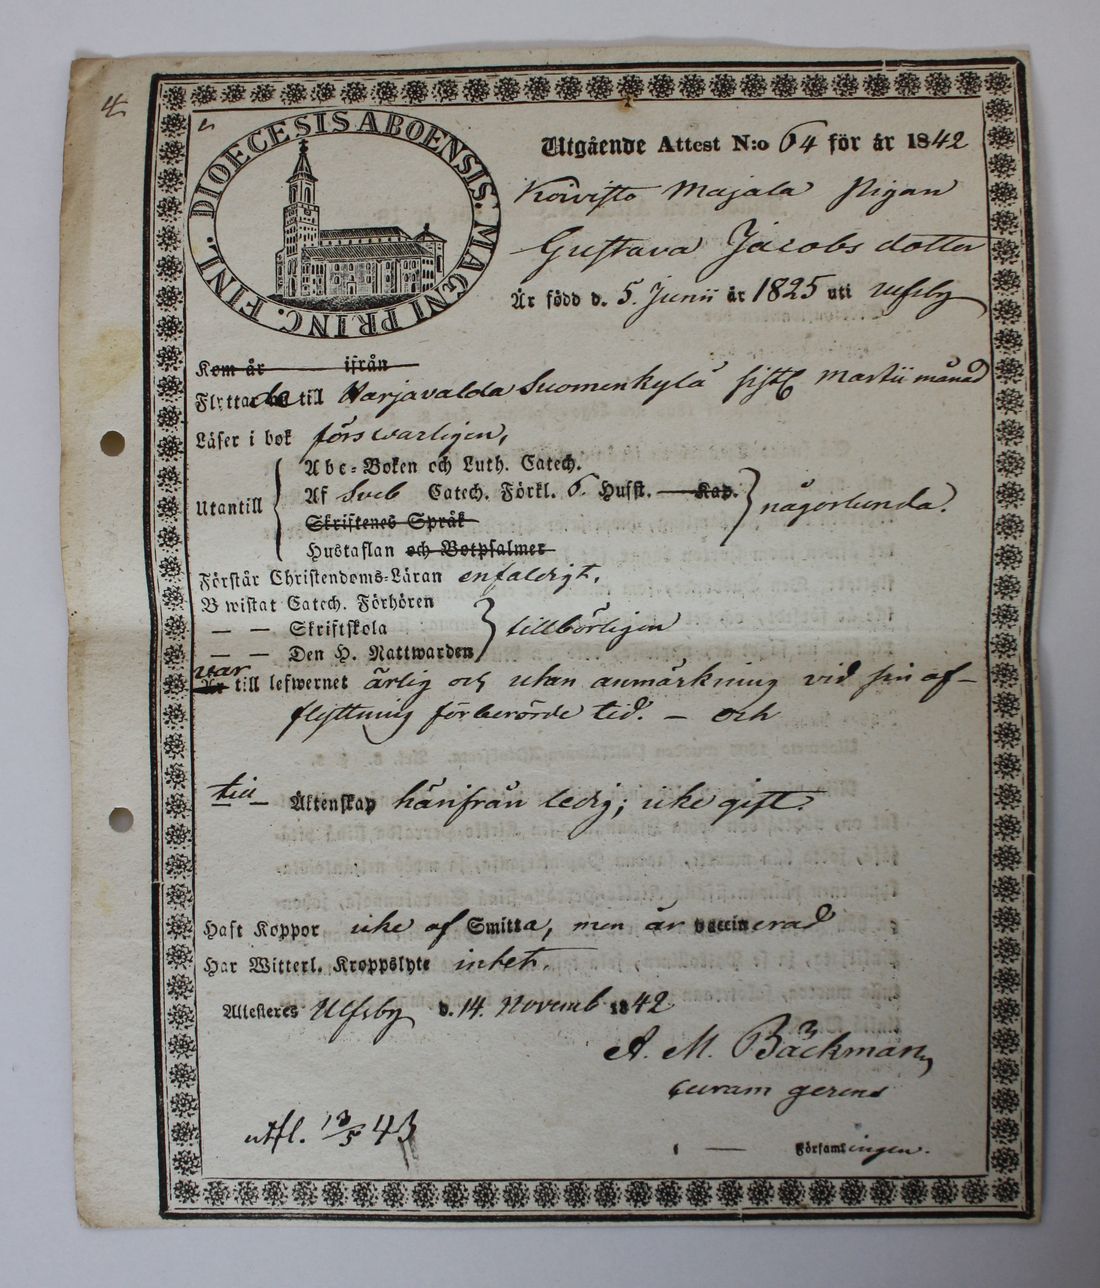 4
DIOECESIS ABOENSIS. MAGNI PRINC. FINL.
Utgående Attest N:o 64 för år 1842
Koivisto Majala Pigan
Gustava Jacobs dotter
Är född d. 5. Junii år 1825 uti Ulfsby
Kom år ifrån
Flyttade till Harjavalda Suomenkylä sistl Martii månad
Läser i bok försvarligen,
Abc-Boken och Luth. Catech.
Utantill Af Sveb Catech. Förkl. 6. Husst. Kap. någorlunda.
Skriftenes Språk
Hustaflan och Botpsalmer
Förstår Christendoms-Läran enfaldigt.
Bwistat Catech. Förhören
— — Skriftskola tillbörligen
— — Den H. Nattwarden
var
Är till lefwernet ärlig och utan anmärkning vid sin af-
flyttning förberörde tid. — och
till Äktenskap härifrån ledig; icke gift.
Haft Koppor icke af Smitta, men är vaccinerad
Har Witterl. Kroppslyte intet.
Attesteres Ulfsby d. 14. Novemb 1842
A. M. Bäckman
curam gerens
utfl. 13/5 43
Församlingen.